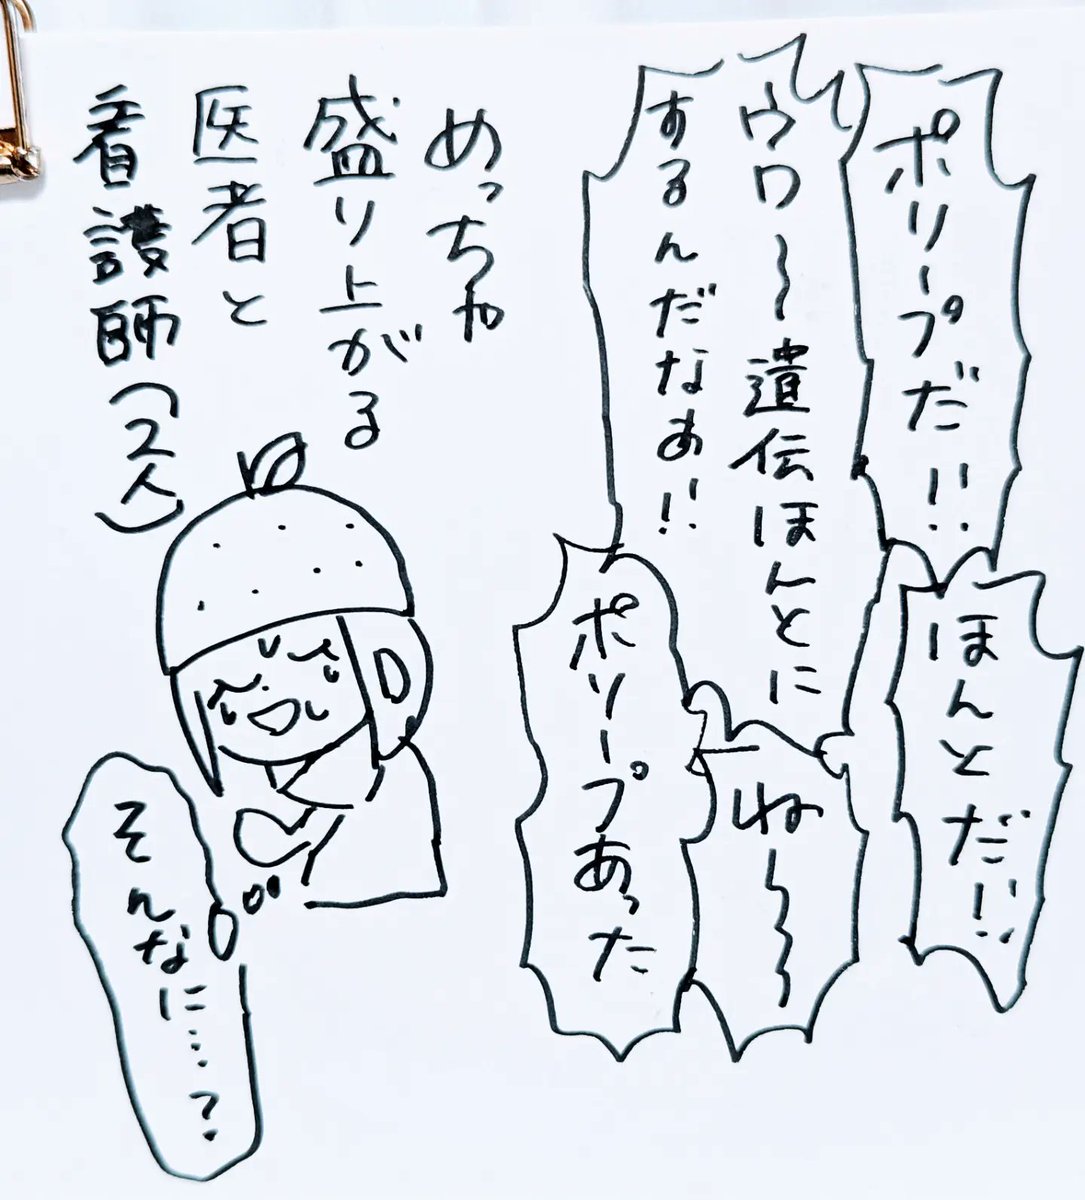 ポリープだ!!
ほんとだ!!
ウワ〜遺伝ほんとに
するんだなぁ!!
ね〜〜〜
ポリープあった
めっちゃ
盛り上がる
医者と
看護師(2人)
そんなに…?